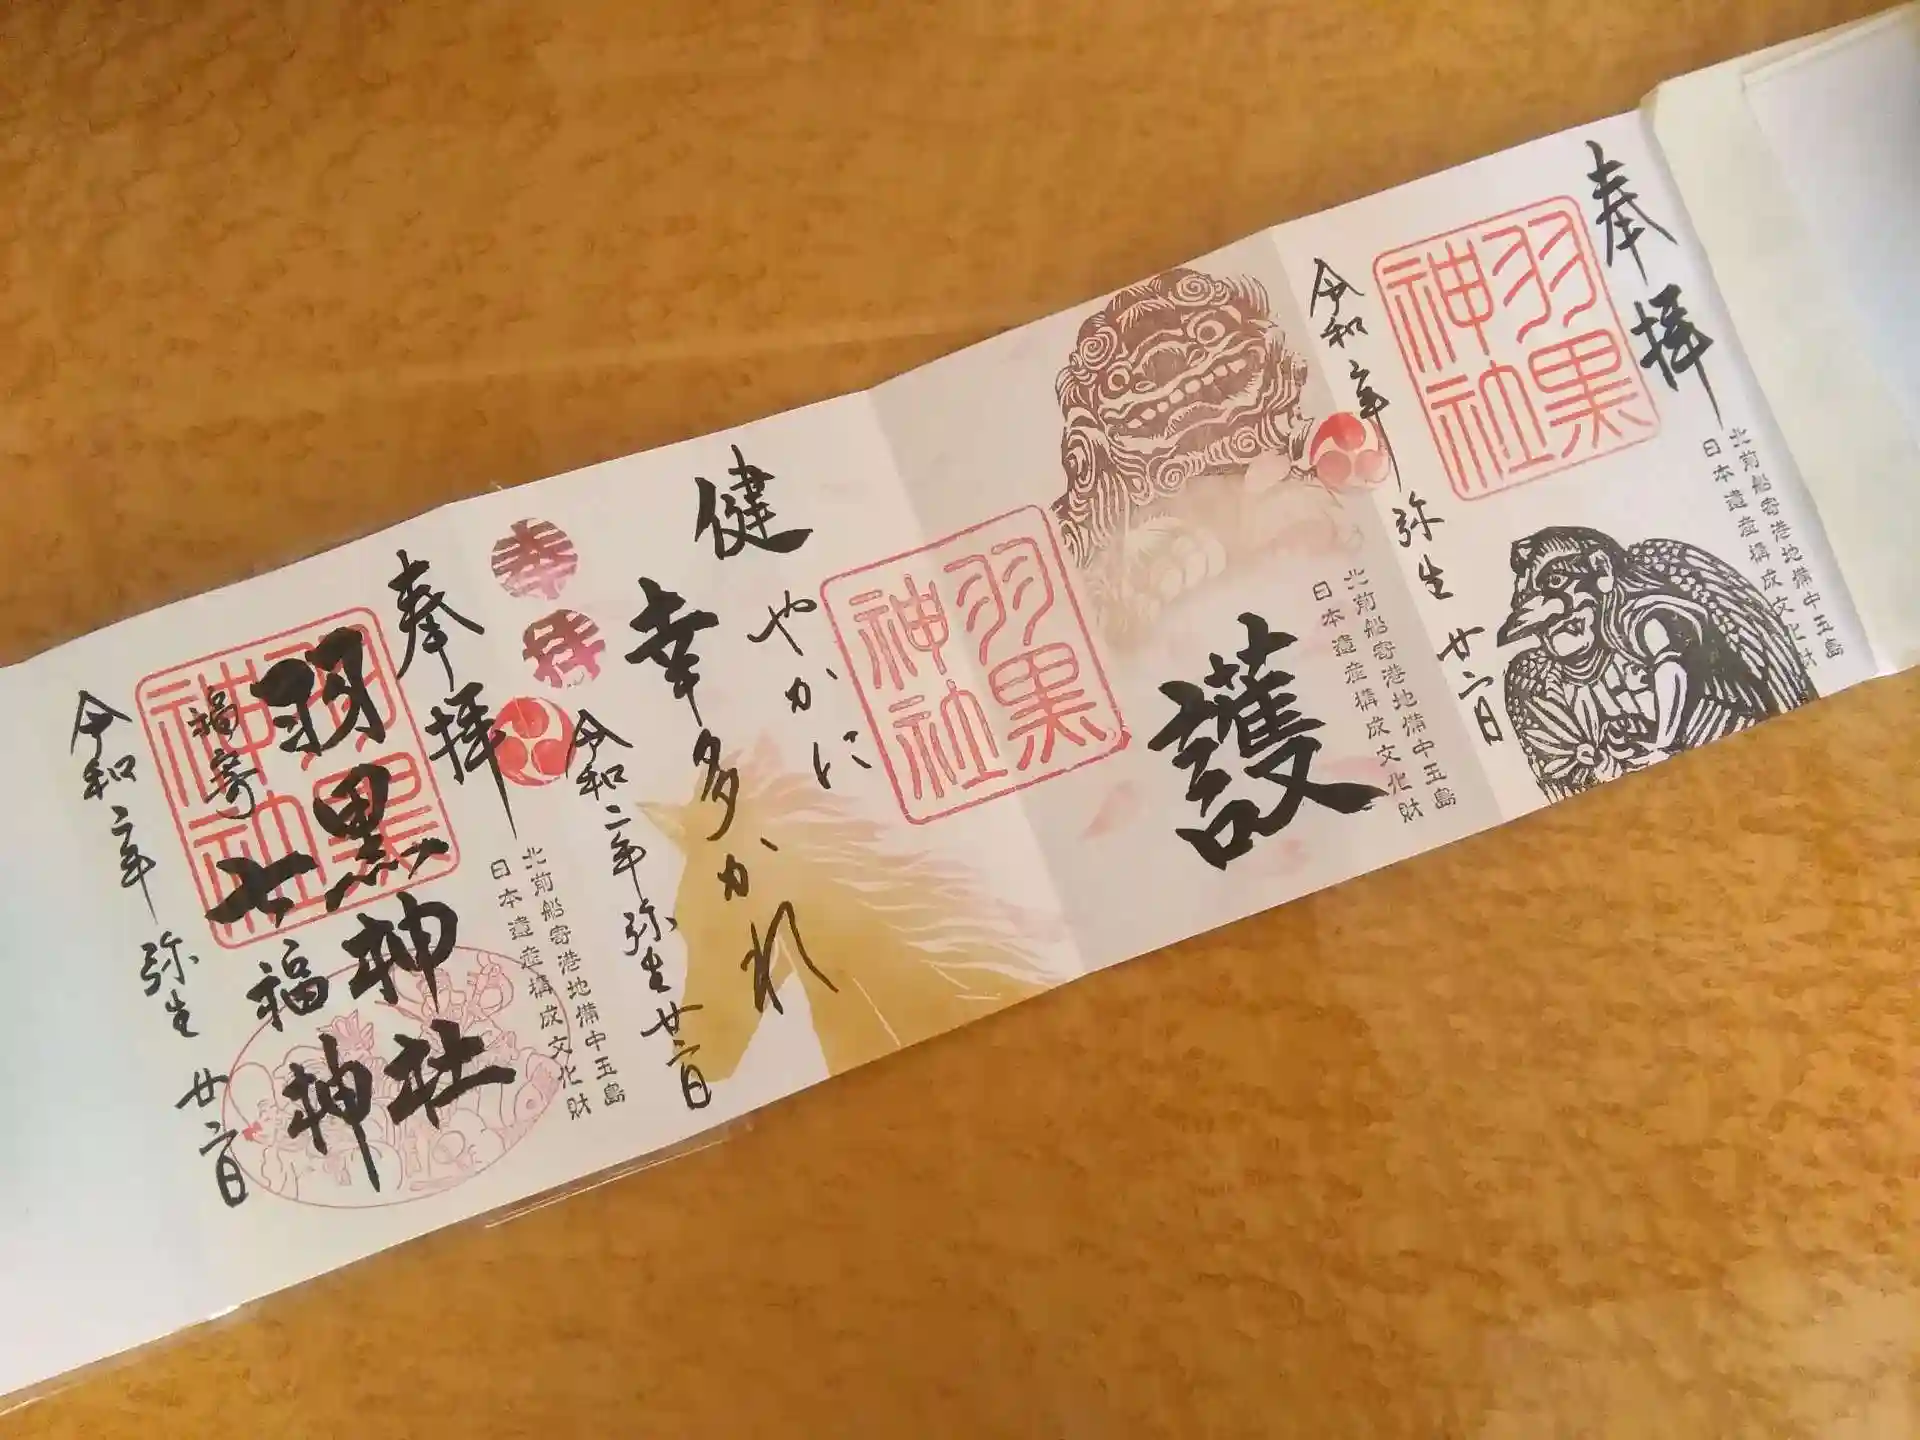 奉拝
羽黒
神社
北前船寄港地備中玉島
日本遺産構成文化財
令和二年
弥生
廿二日
護
北前船寄港地備中玉島
日本遺産構成文化財
羽黒
神社
健やかに
幸多かれ
奉拝
令和二年弥生廿二日
奉拝
北前船寄港地備中玉島
日本遺産構成文化財
羽黒神社
羽黒
神社
福寄
七福神
令和二年弥生廿二日